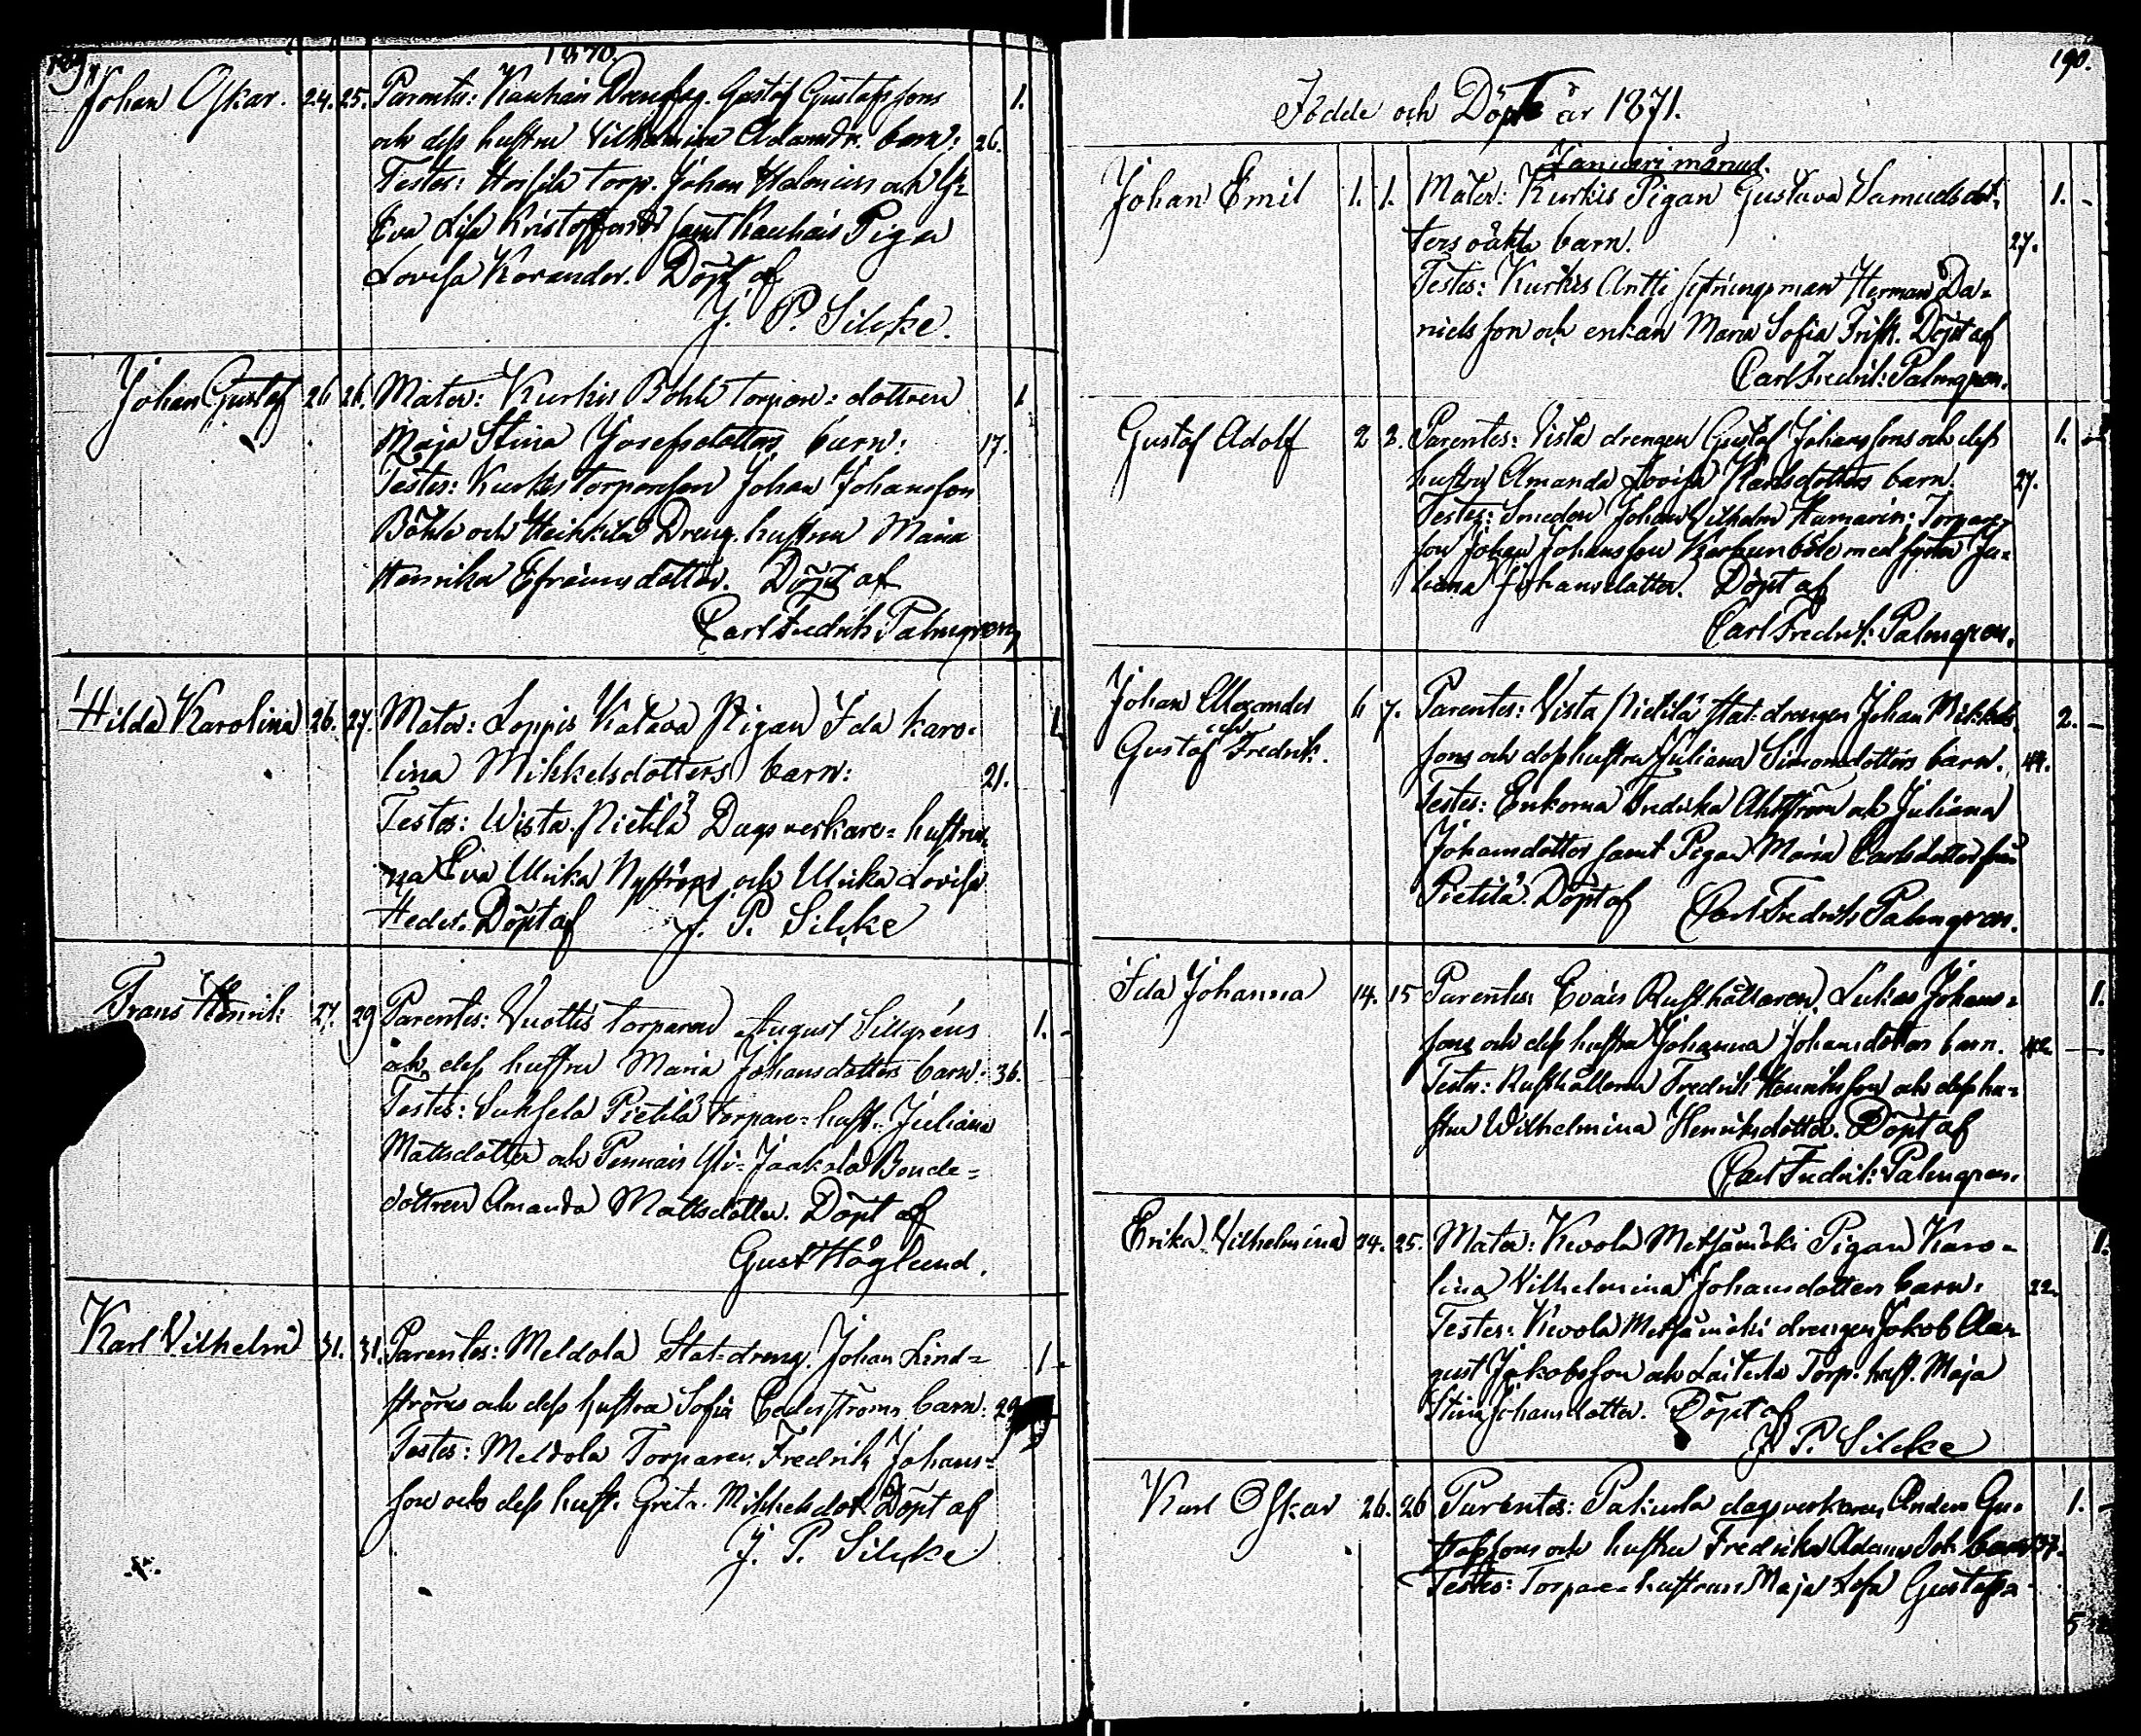 1870.
Johan Oskar. 24. 25. Parentes: Kauhais Drengkg. Gustaf Gustafssons 1.
och dess hustru Vilhelmina Adamsdr. barn: 26.
Testes: torp. Johan Helenius och
Eva Lisa Kristoffersdr samt Kauhais Piga
Lovisa Korander. Döpt af
J. P. Silcke.
Johan Gustaf 26 26. Mater: Kurkis Böhle torpare-dottren 1
Maja Stina Josefsdotters barn: 17.
Testes: Kurkis torpareson Johan Johansson
Böhle och Heikkilä Dreng. hustrun Maria
Henrika Efraimsdotter. Döpt af
Carl Fredrik Palmgren,
Hilda Karolina 26. 27. Mater: Loppis Katava Pigan Ida Karo- 1.
lina Mikkelsdotters barn: 21.
Testes: Wista Pietilä Dagsverkare-hustrur-
na Eva Ulrika Nyström och Ulrika Lovisa
Heder. Döpt af J. P. Silcke
Frans Henrik: 27. 29 Parentes: Vuottis torparen August Sillgréns 1. -
och dess hustru Maria Johansdotters barn: 36.
Testes: Suksela Pietilä torpare-hust. Juliana
Mattsdotter och Pennais Yli-Jaakola Bonde-
dottren Amanda Mattsdotter. Döpt af
Gust Höglund.
Karl Vilhelm 31. 31. Parentes: Meldola Stat-dreng. Johan Lind- 1 -
ströms och dess hustru Sofia Cederströms barn: 29
Testes: Meldola Torparen Fredrik Johans-
son och dess hust. Greta Mikkelsdot. Döpt af
J. P. Silcke
190.
Födde och Döpte år 1871.
Januari månad.
Johan Emil 1. 1. Mater: Kurkis Pigan Gustava Samuelsdot- 1. -
ters oäkta barn. 27.
Testes: Kurkis Antti sytningsman Herman Da-
nielsson och enkan Maria Sofia Frisk. Döpt af
Carl Fredrik: Palmgren.
Gustaf Adolf 2 3. Parentes: Vista drengen Gustaf Johanssons och dess 1. -
hustru Amanda Lovisa Karlsdotters barn. 27.
Testes: Smeden Johan Vilhelm Hamarin; Torpare-
son Johan Johansson med syster Ju-
liana Johansdotter. Döpt af
Carl Fredrik: Palmgren.
Johan Alexander 6 7. Parentes: Vista Pietilä Stat-drengen Johan Mikkels- 2. -
och
Gustaf Fredrik. sons och dess hustru Juliana Simonsdotters barn. 44.
Testes: Enkorna Fredrika Ahlström och Juliana
Johansdotter samt Pigan Maria Carlsdotter från
Pietilä. Döpt af Carl Fredrik Palmgren.
Ida Johanna 14. 15 Parentes: Evais Rusthållaren Lukas Johans- 1.
sons och dess hustru Johanna Johansdotters barn. 42. -
Testes: Rusthållaren Fredrik Henriksson och dess hu-
stru Wilhelmina Henriksdotter. Döpt af
Carl Fredrik: Palmgren.
Erika Vilhelmina 24. 25. Mater: Kivola Metsämäki Pigan Karo- 1.
lina Vilhelmina Johansdotters barn. 22.
Testes: Kivola Metsämäki drengen Jakob Au-
gust Jakobsson och Laitila Torp. hust. Maja
Stina Johansdotter. Döpt af
J. P. Silcke
Karl Oskar 26. 26 Parentes: Pakurla dagsverkaren Anders Gu- 1. -
stafssons och hustru Fredrika Adamsdot. barn 37.
Testes: Torpare-hustrun Maja Lisa Gustafs-
5